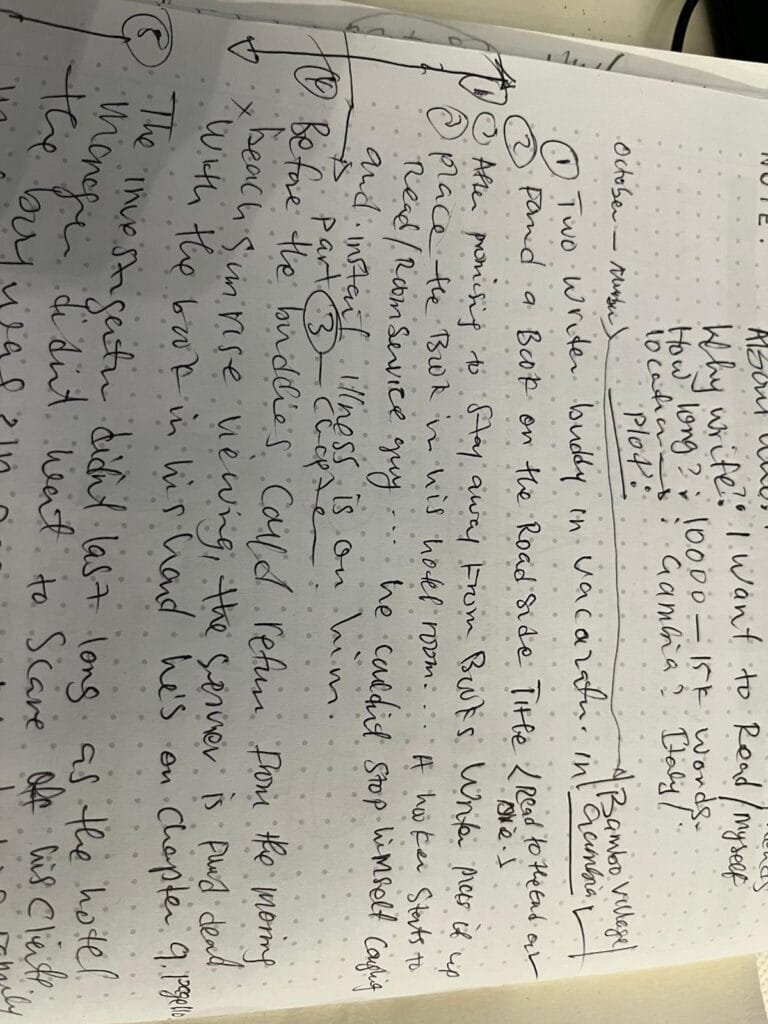 NOTE:
Why write?: I want to Read/myself
How long?: 10000 – 15k words.
location → : Gambia? Italy/.
October –
Plot:
Bambo village/
Gambia
① Two writer buddy in vacaratn. in
② Found a Book on the Road side Title < Read to the end or
Die.>
① After promising to stay away from Books writer picks it up
② place the Book in his hotel room... A hooker starts to
Read/Room service guy... he couldnt stop himself
and instant illness is on him.
part ③ –
④ Before the buddies could return from the moring
x beach sunrise viewing, the server is fund dead
with the book in his hand he's on chapter 9,
⑤ The investigatn didnt last long as the hotel
manager didnt want to scare off his
the
family